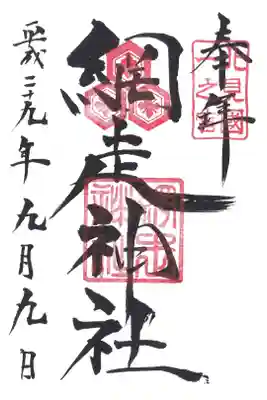 奉拝
北見國
網走神社
網走神社
平成二十九年九月九日